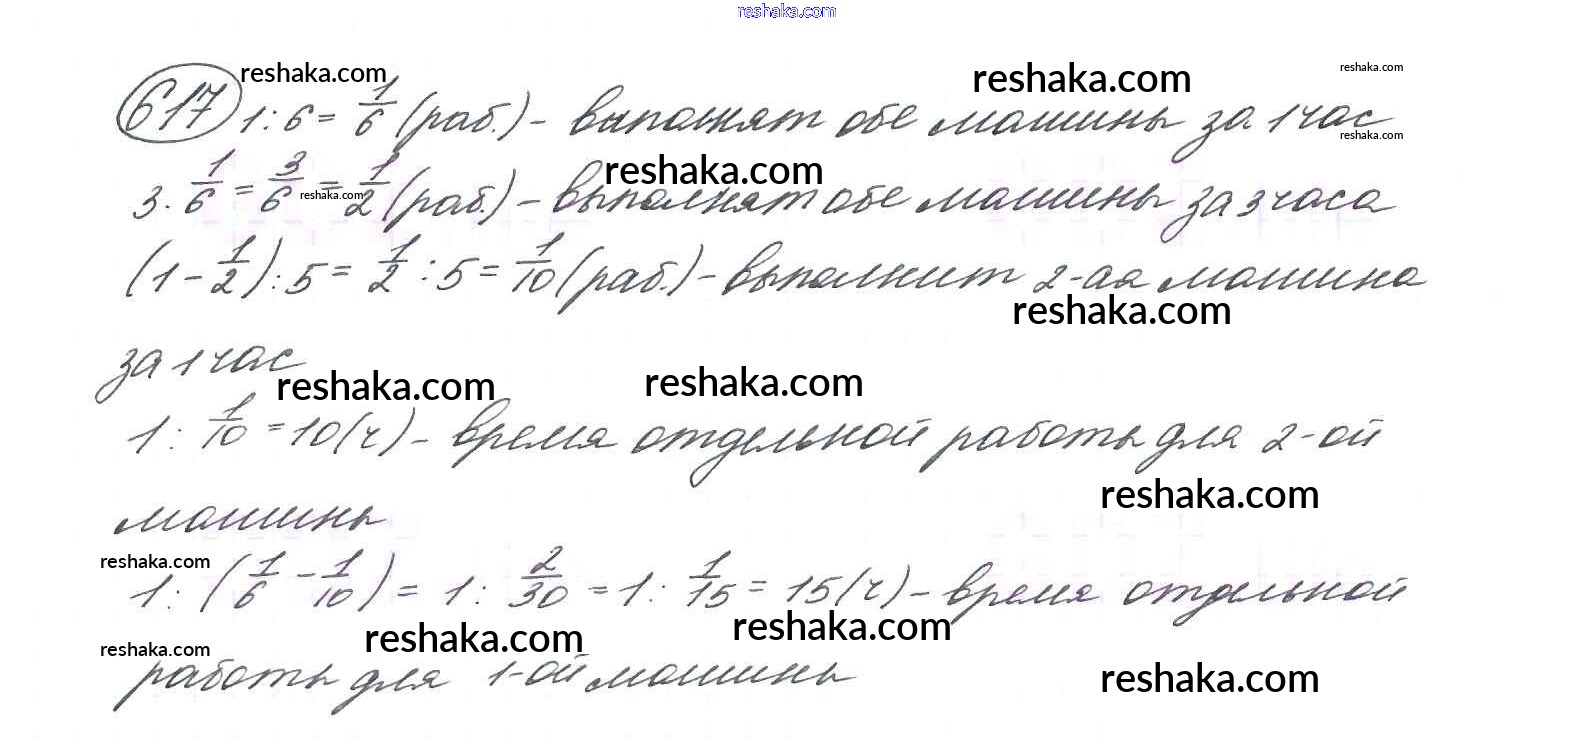 reshaka.com
617 1:6 = 1/6 (раб.) - выполнят обе машины за 1 час
reshaka.com reshaka.com reshaka.com
reshaka.com
3 · 1/6 = 3/6 = 1/2 (раб.) - выполнят обе машины за 3 часа
reshaka.com reshaka.com
(1 - 1/2) : 5 = 1/2 : 5 = 1/10 (раб.) - выполнит 2-ая машина
reshaka.com
за 1 час
reshaka.com reshaka.com
1 : 1/10 = 10 (ч) - время отдельной работы для 2-ой
reshaka.com
машины
reshaka.com
1 : (1/6 - 1/10) = 1 : 2/30 = 1 : 1/15 = 15 (ч) - время отдельной
reshaka.com reshaka.com reshaka.com
работы для 1-ой машины
reshaka.com